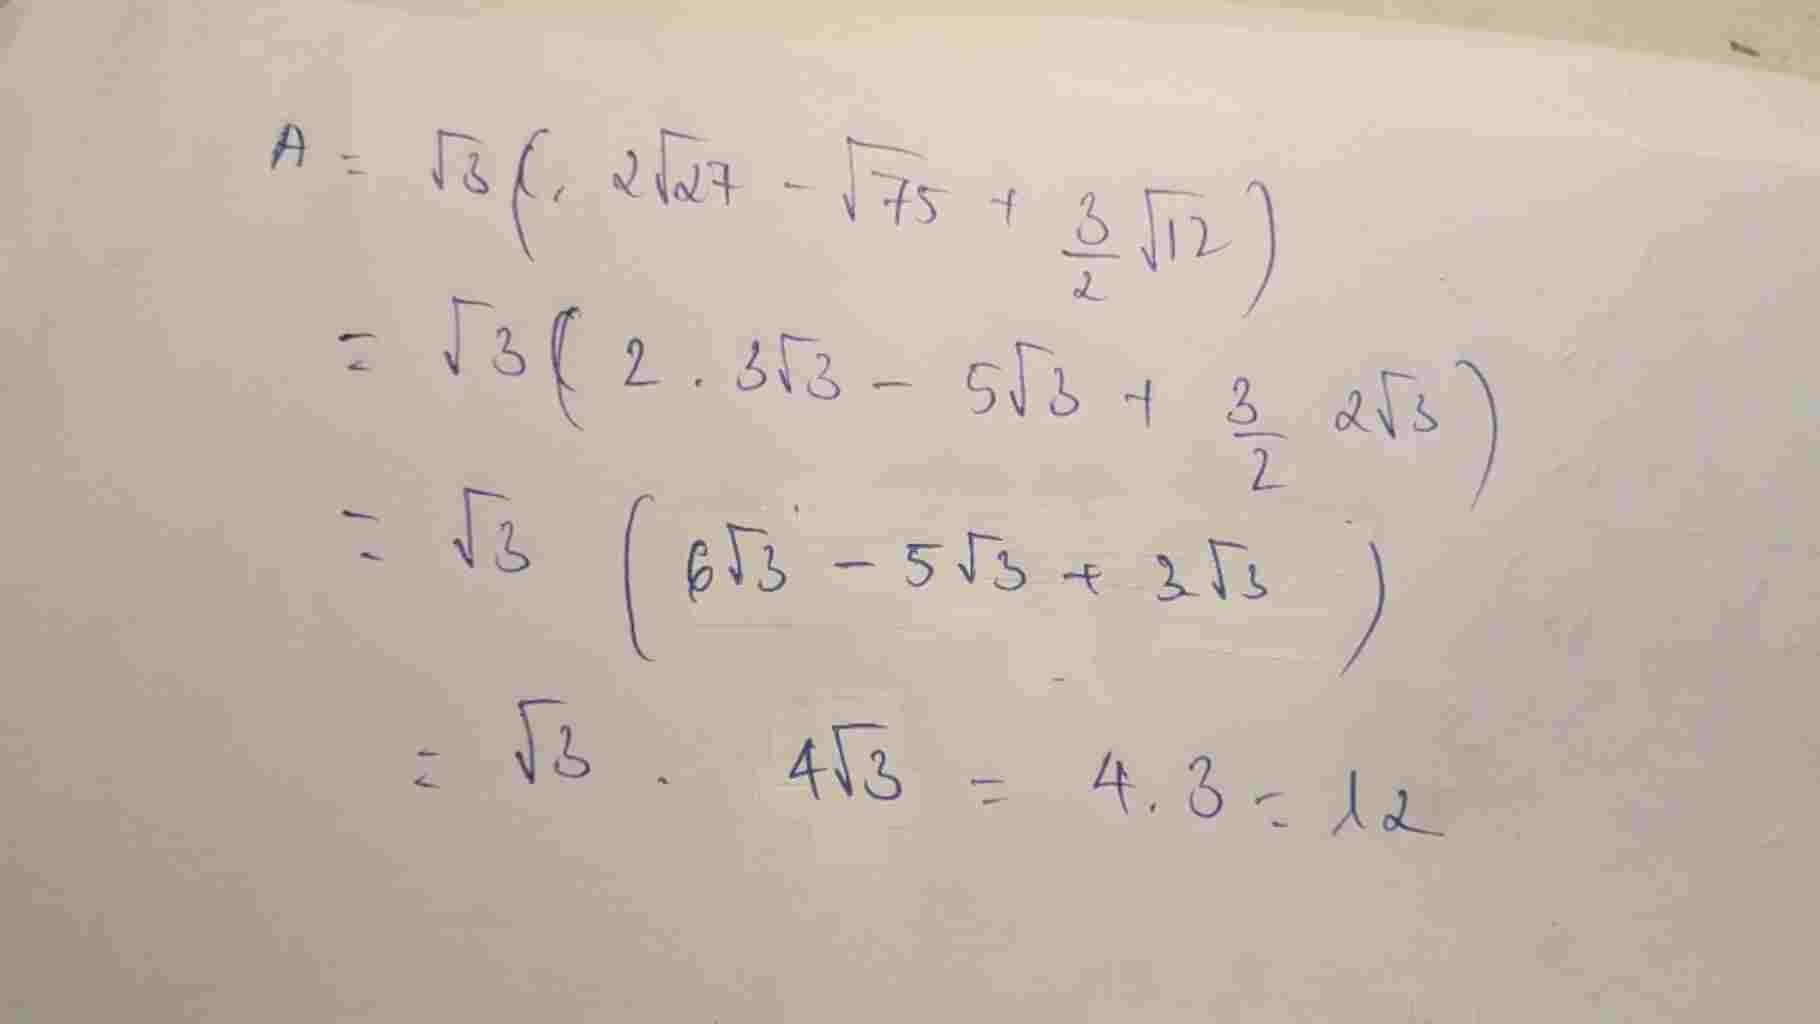 A = √3(. 2√27 - √75 + 3/2 √12)
= √3( 2 . 3√3 - 5√3 + 3/2 2√3)
= √3 (6√3 - 5√3 + 3√3)
= √3 . 4√3 = 4.3 = 12